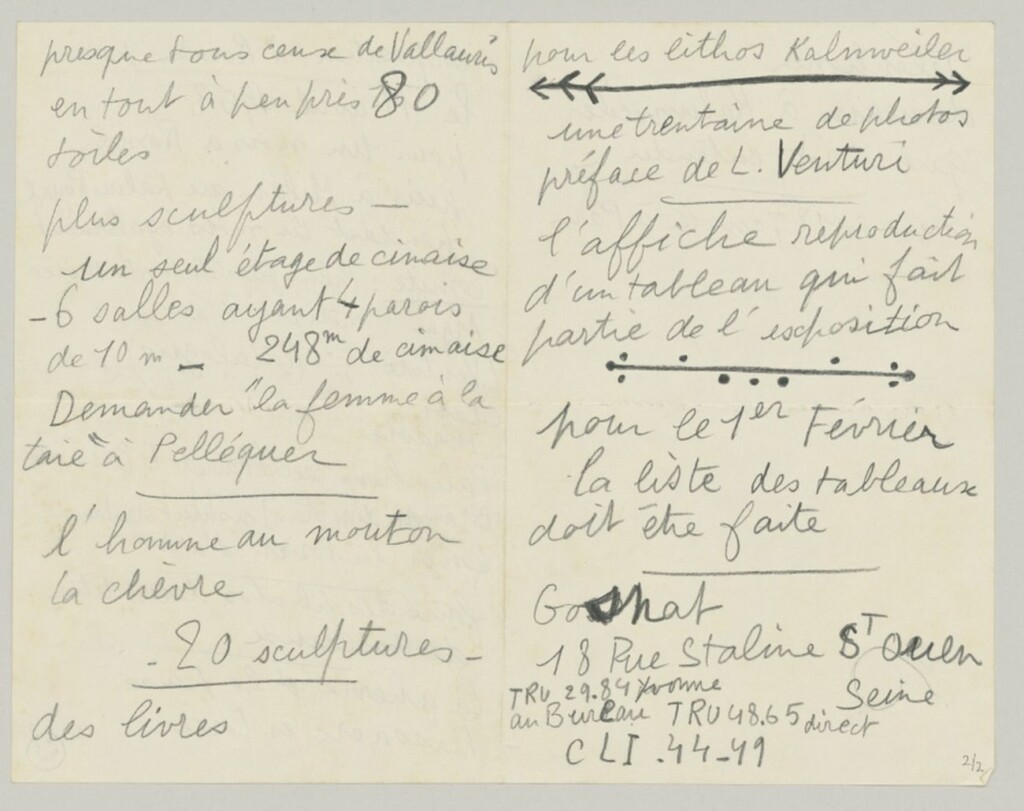 presque tous ceux de Vallauris
en tout à peu près 80
toiles
plus sculptures —
un seul étage de cimaise
- 6 salles ayant 4 parois
de 10 m — 248m de cimaise
Demander "la femme à la
taie" à Pelléquer
l'homme au mouton
la chèvre
- 20 sculptures -
des livres
pour les lithos Kahnweiler
une trentaine de photos
préface de L. Venturi
l'affiche reproduction
d'un tableau qui fait
partie de l'exposition
pour le 1er Février
la liste des tableaux
doit être faite
18 Rue Staline ST Ouen
Seine
TRU 29.84 Yvonne
au Bureau TRU 48.65 direct
CLI .44-49
2/2